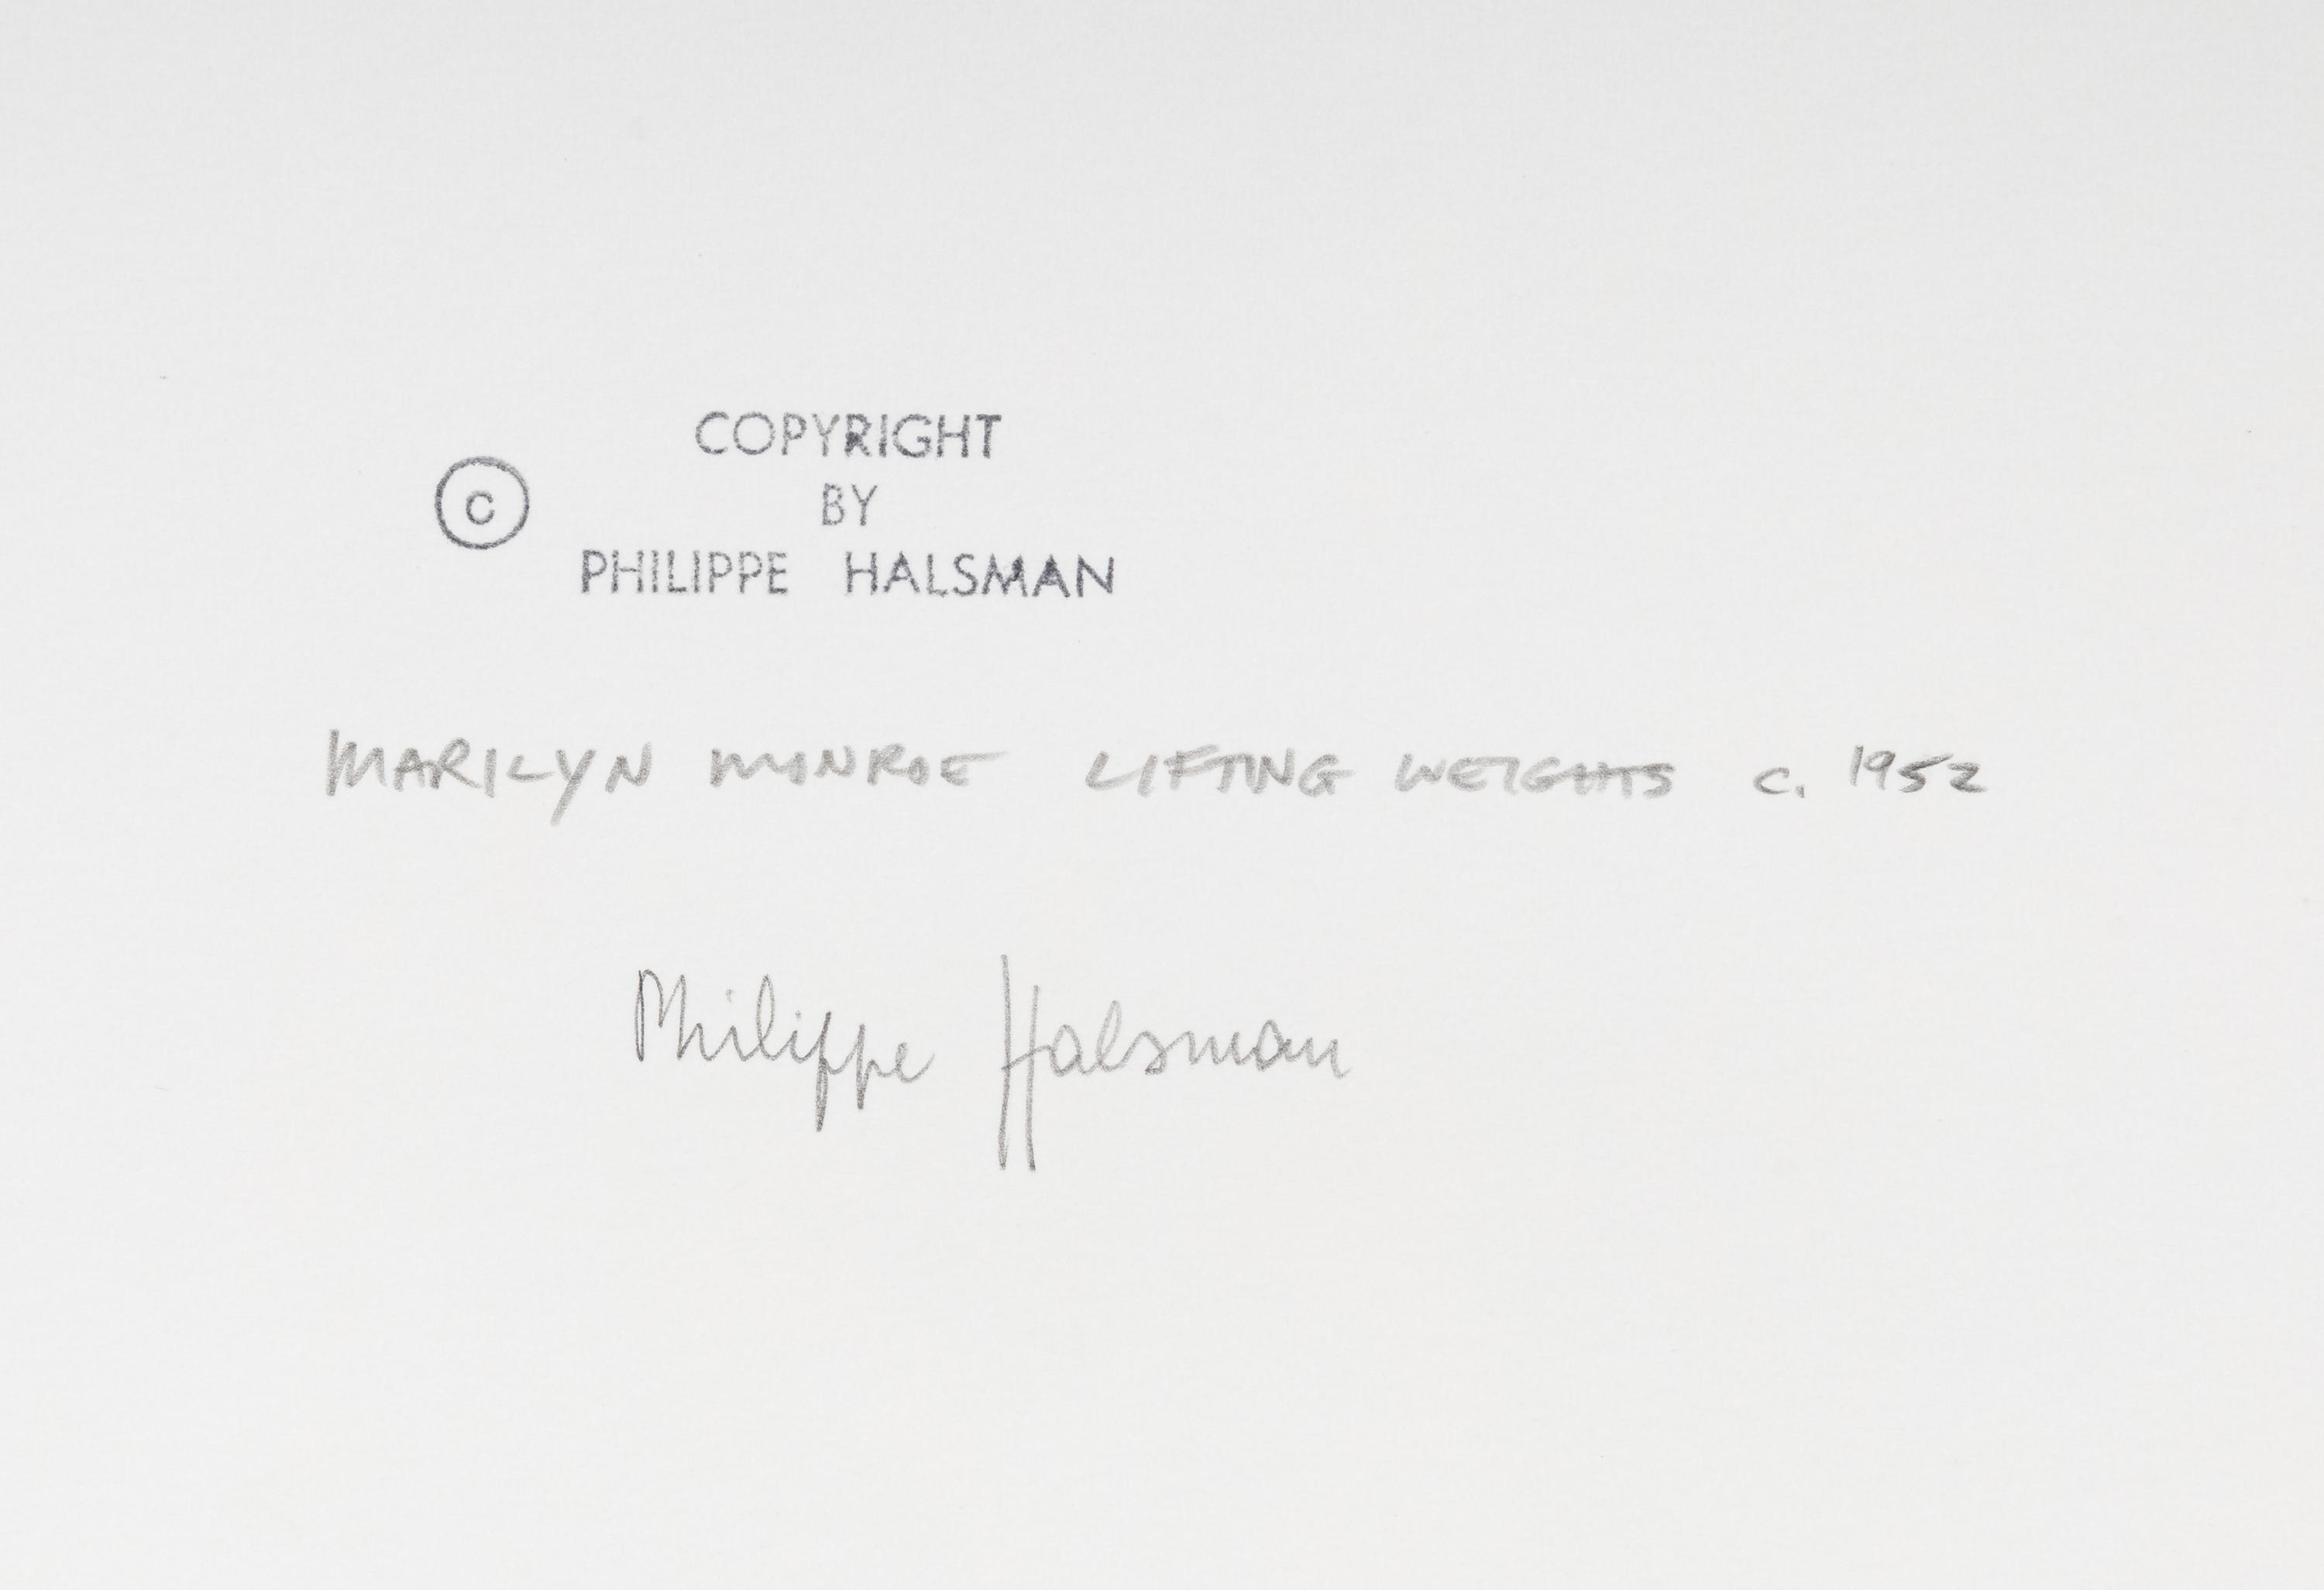 COPYRIGHT
© BY
PHILIPPE HALSMAN
MARILYN MONROE LIFTING WEIGHTS c. 1952
Philippe Halsman